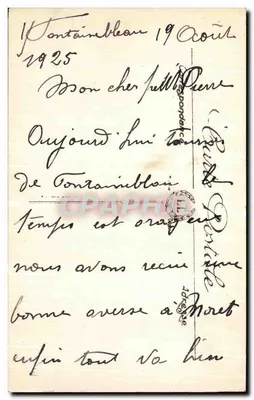 Fontainebleau 19 Août
1925
Mon cher petit Pierre
Aujourd'hui tour
de Fontainebleau
temps est orageux
nous avons recu une
bonne averse a Moret
enfin tout va bien
Carte Postale
Correspondance
Adresse
CPAPHIL